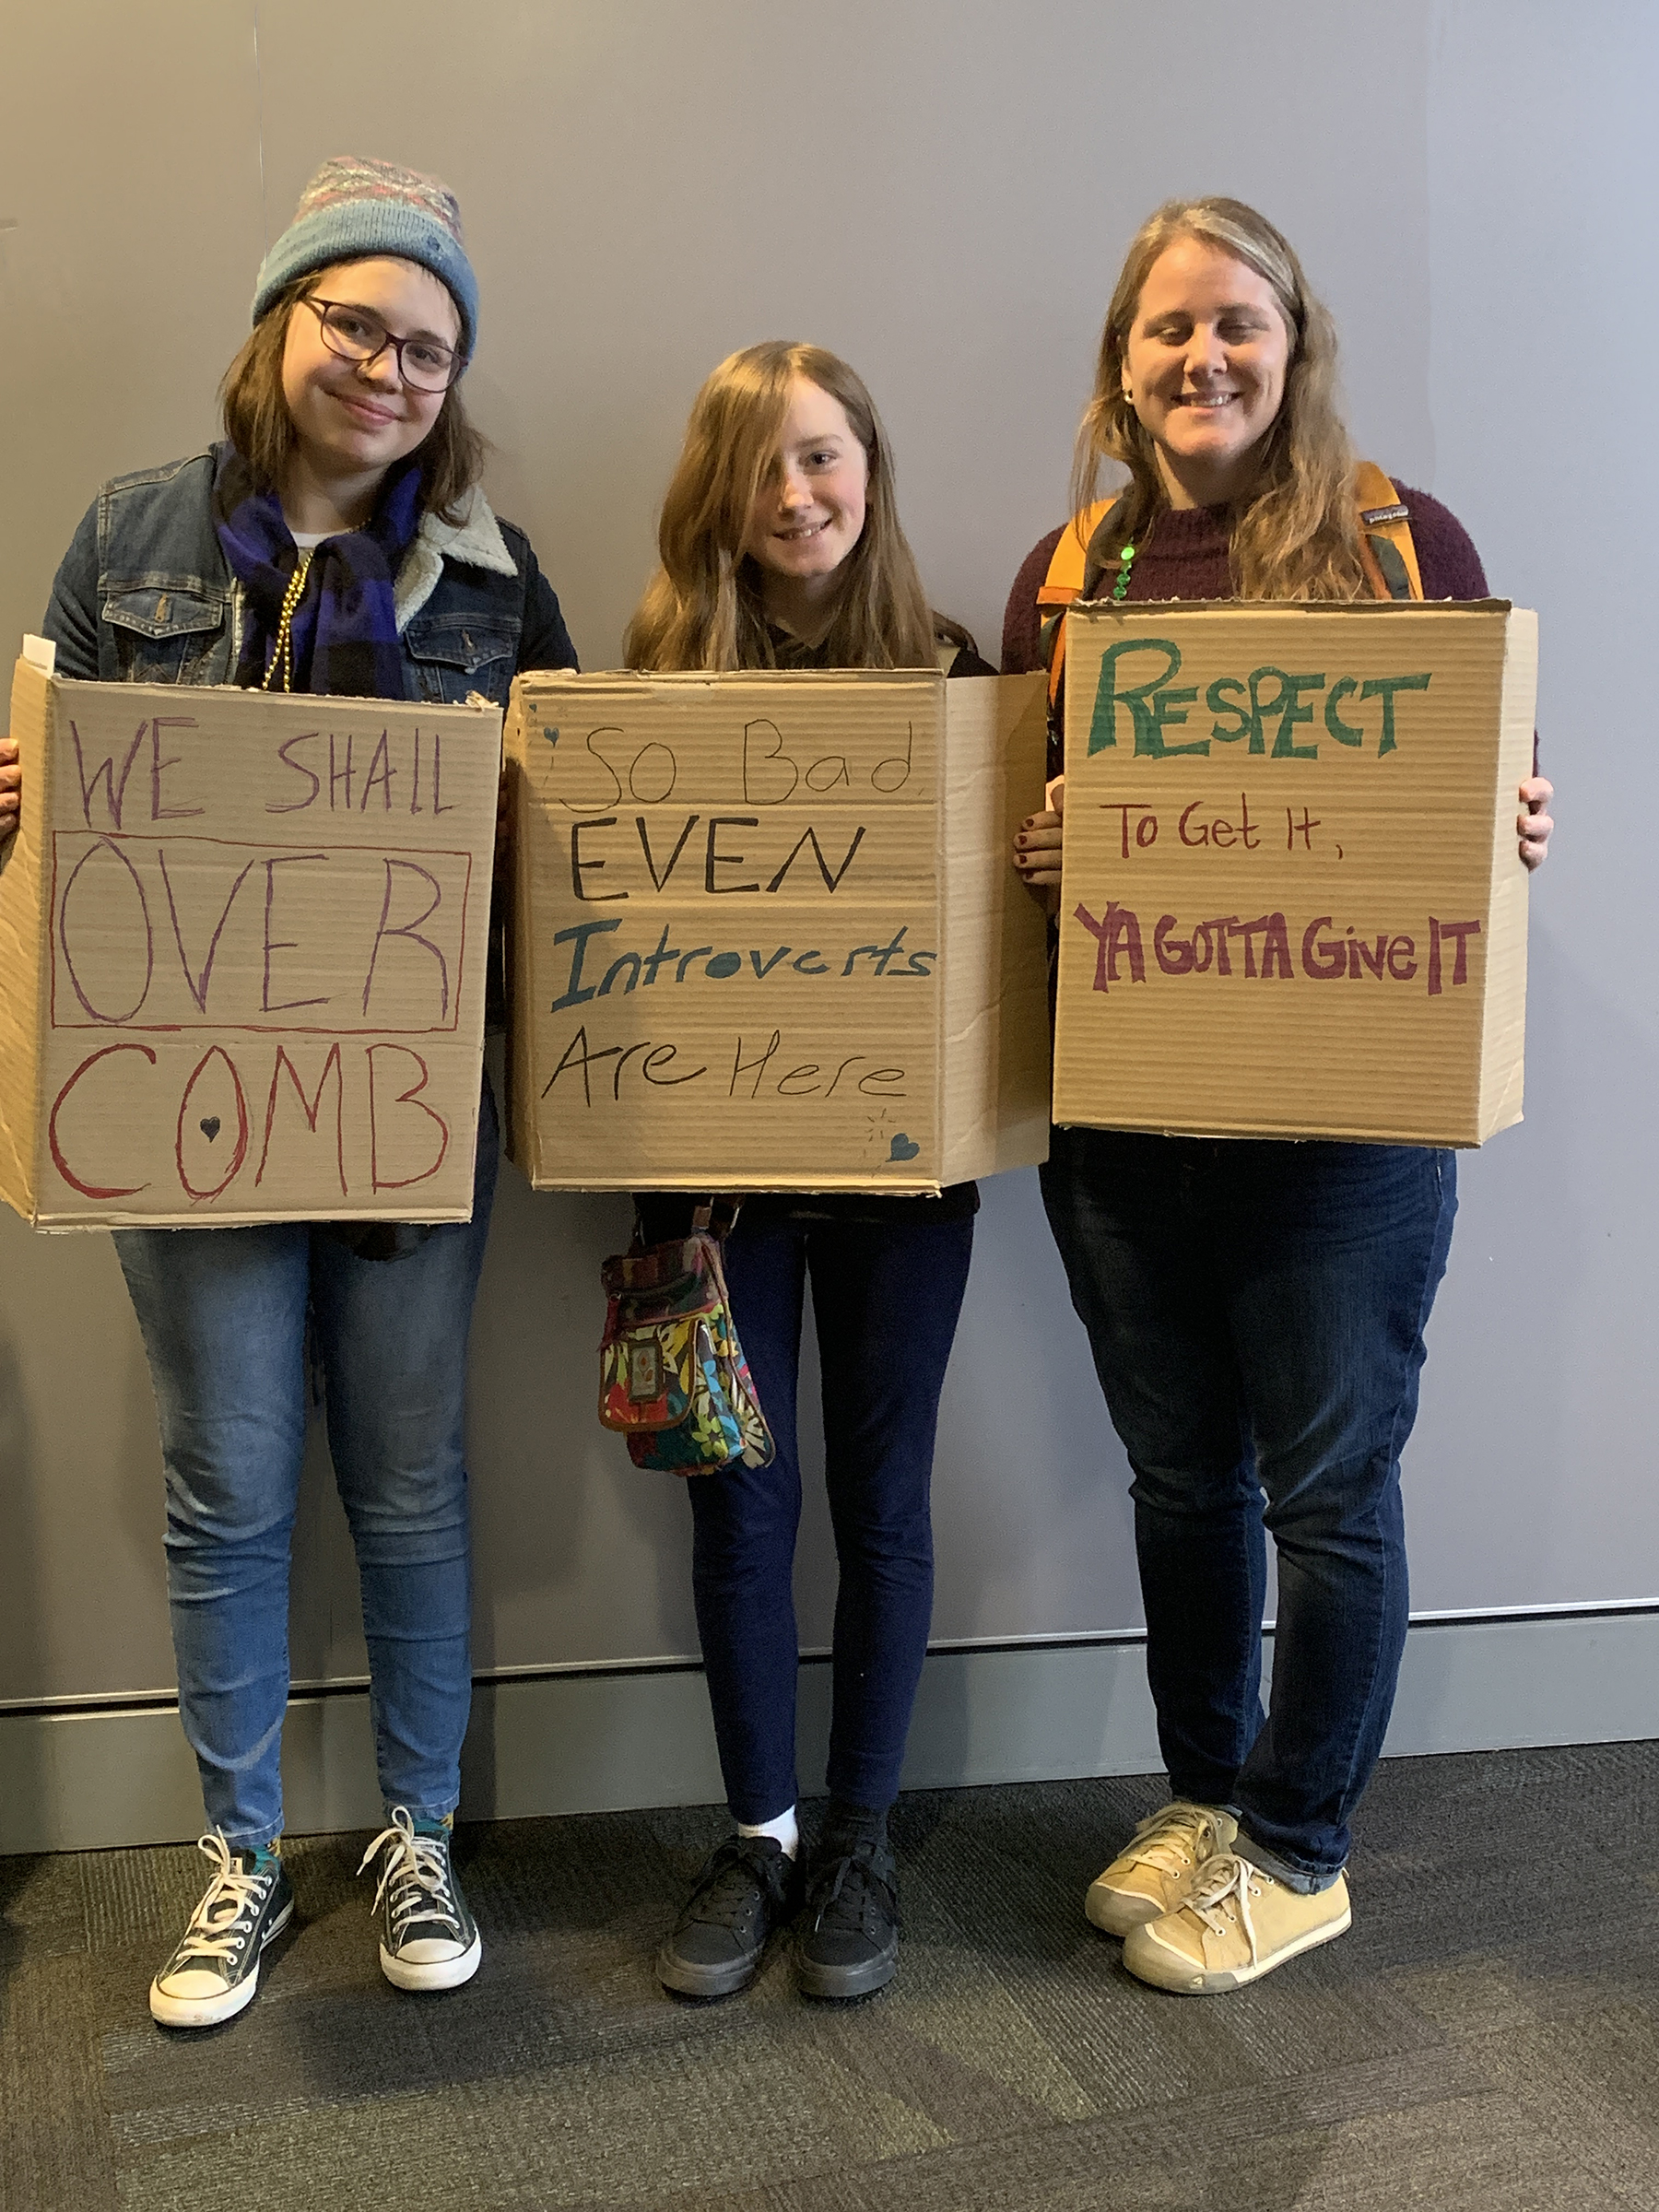 WE SHAll
OVER
COMB
So Bad,
EVEN
Introverts
Are Here
RESPECT
To Get It,
YA GOTTA Give IT